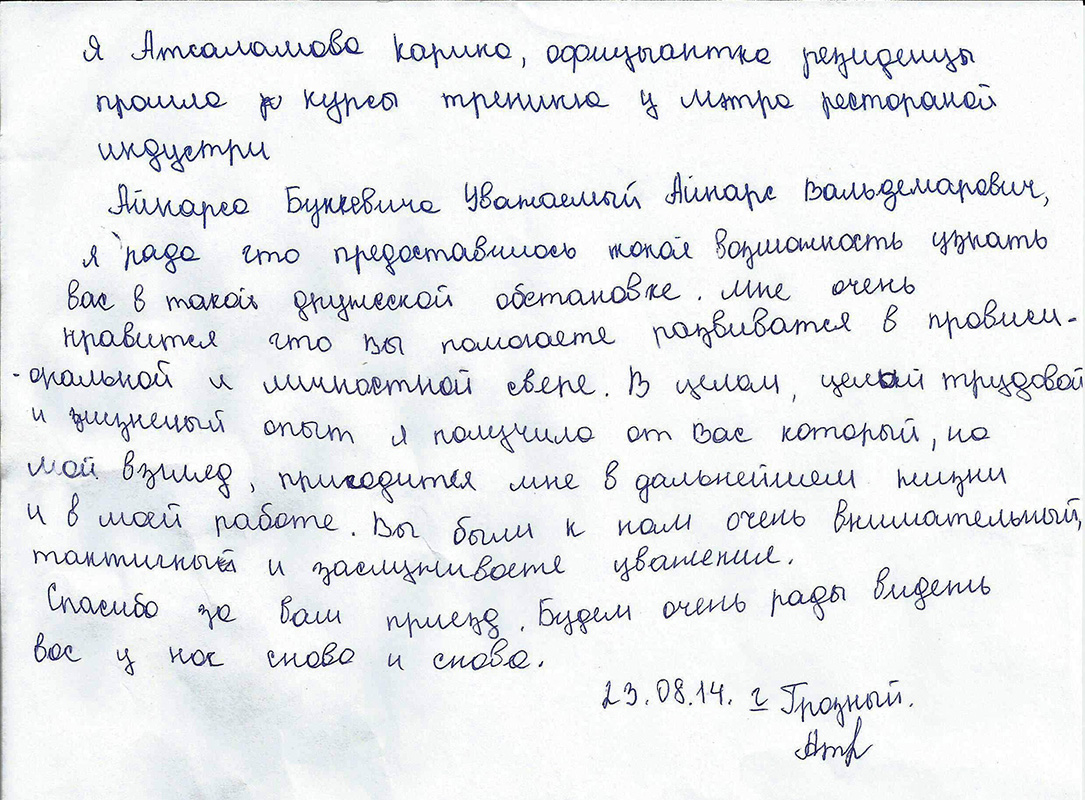 Я Атсаламова Карина, официантка резиденцы
прошла курсы тренинга у мэтра рестораной
индустри
Айнарса Буккевича Уважаемый Айнарс Вальдемарович,
я рада что предоставилось такая возможность узнать
вас в такой дружеской обстановке. Мне очень
нравится что Вы помогаете развиватся в провиси-
-ональной и личностной свере. В целом, целый трудовой
и жизненый опыт я получила от Вас который, на
мой взгляд, пригодится мне в дальнейшем жизни
и в моей работе. Вы были к нам очень внимательный,
тактичный и заслуживаете уважение.
Спасибо за ваш приезд. Будем очень рады видеть
вас у нас снова и снова.
23.08.14. г Грозный.